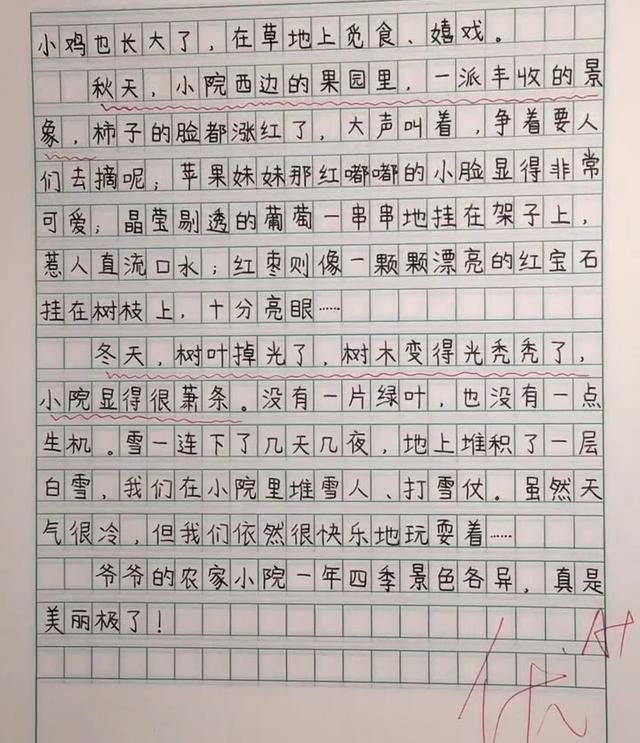 小鸡也长大了，在草地上觅食、嬉戏。
秋天，小院西边的果园里，一派丰收的景
象，柿子的脸都涨红了，大声叫着，争着要人
们去摘呢；苹果妹妹那红嘟嘟的小脸显得非常
可爱；晶莹剔透的葡萄一串串地挂在架子上，
惹人直流口水；红枣则像一颗颗漂亮的红宝石
挂在树枝上，十分亮眼……
冬天，树叶掉光了，树木变得光秃秃了，
小院显得很萧条。没有一片绿叶，也没有一点
生机。雪一连下了几天几夜，地上堆积了一层
白雪，我们在小院里堆雪人、打雪仗。虽然天
气很冷，但我们依然很快乐地玩耍着……
爷爷的农家小院一年四季景色各异，真是
美丽极了！
优.A+